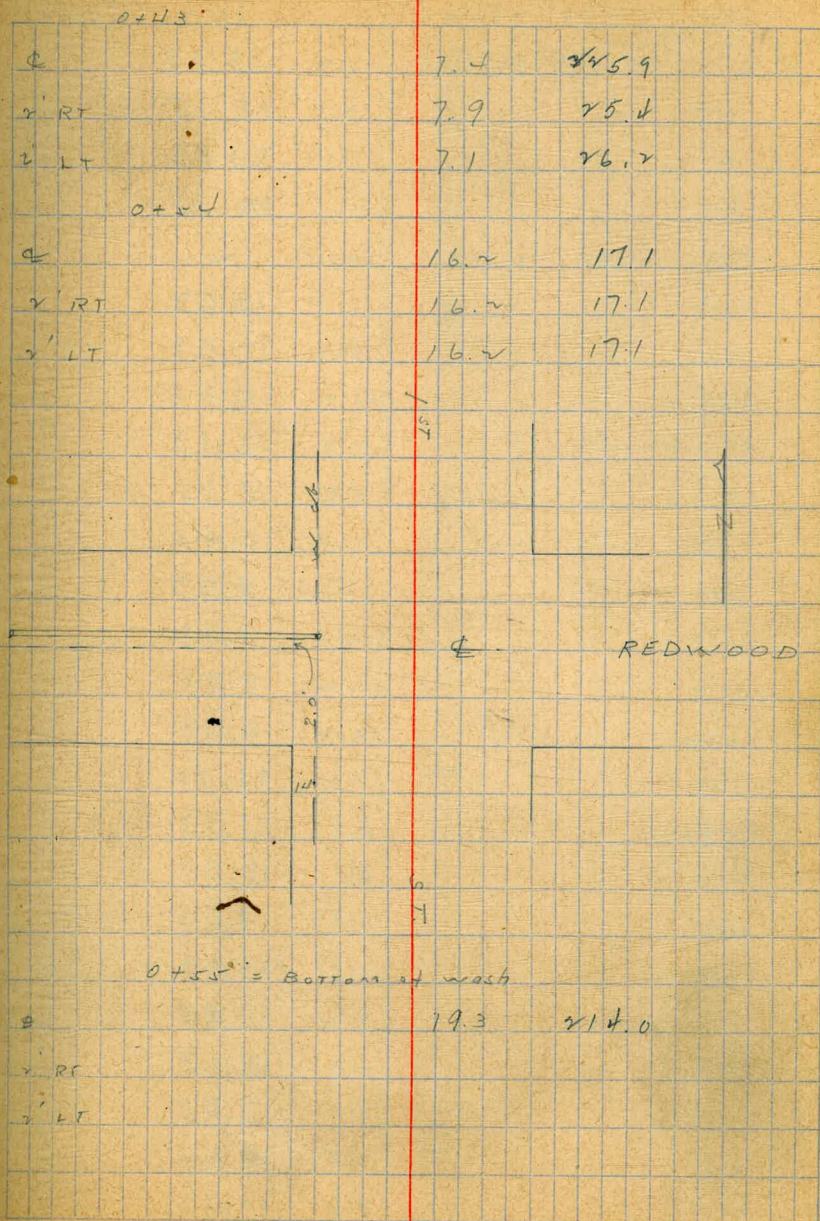 0+43
℄ 7.4 225.9
2' RT 7.9 25.4
2' LT 7.1 26.2
0+54
℄ 16.2 17.1
2' RT 16.2 17.1
2' LT 16.2 17.1
1ST
W cb
N
℄ REDWOOD
2.0'
14'
ST
0+55 = Bottom of wash
19.3 214.0
2' RT
2' LT